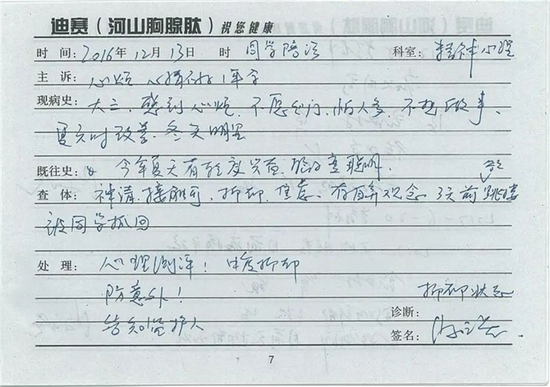 迪赛(河山胸腺肽) 祝您健康
时 间: 2016年12月13日 时 同学陪诊 科室: 精神心理
主 诉: 心烦 心情不好1年余
现病史: 大三, 感到心烦, 不愿出门, 怕人多, 不想做事,
夏天时改善, 冬天明显
既往史: 今年夏天有轻度兴奋,
查 体: 神清, 接触可, 抑郁, 焦虑, 存自弃观念, 3天前欲跳楼
被同学抓回
处 理: 心理测评: 中度抑郁
防意外!
抑郁状态
告知监护人
诊断:
签名:
7